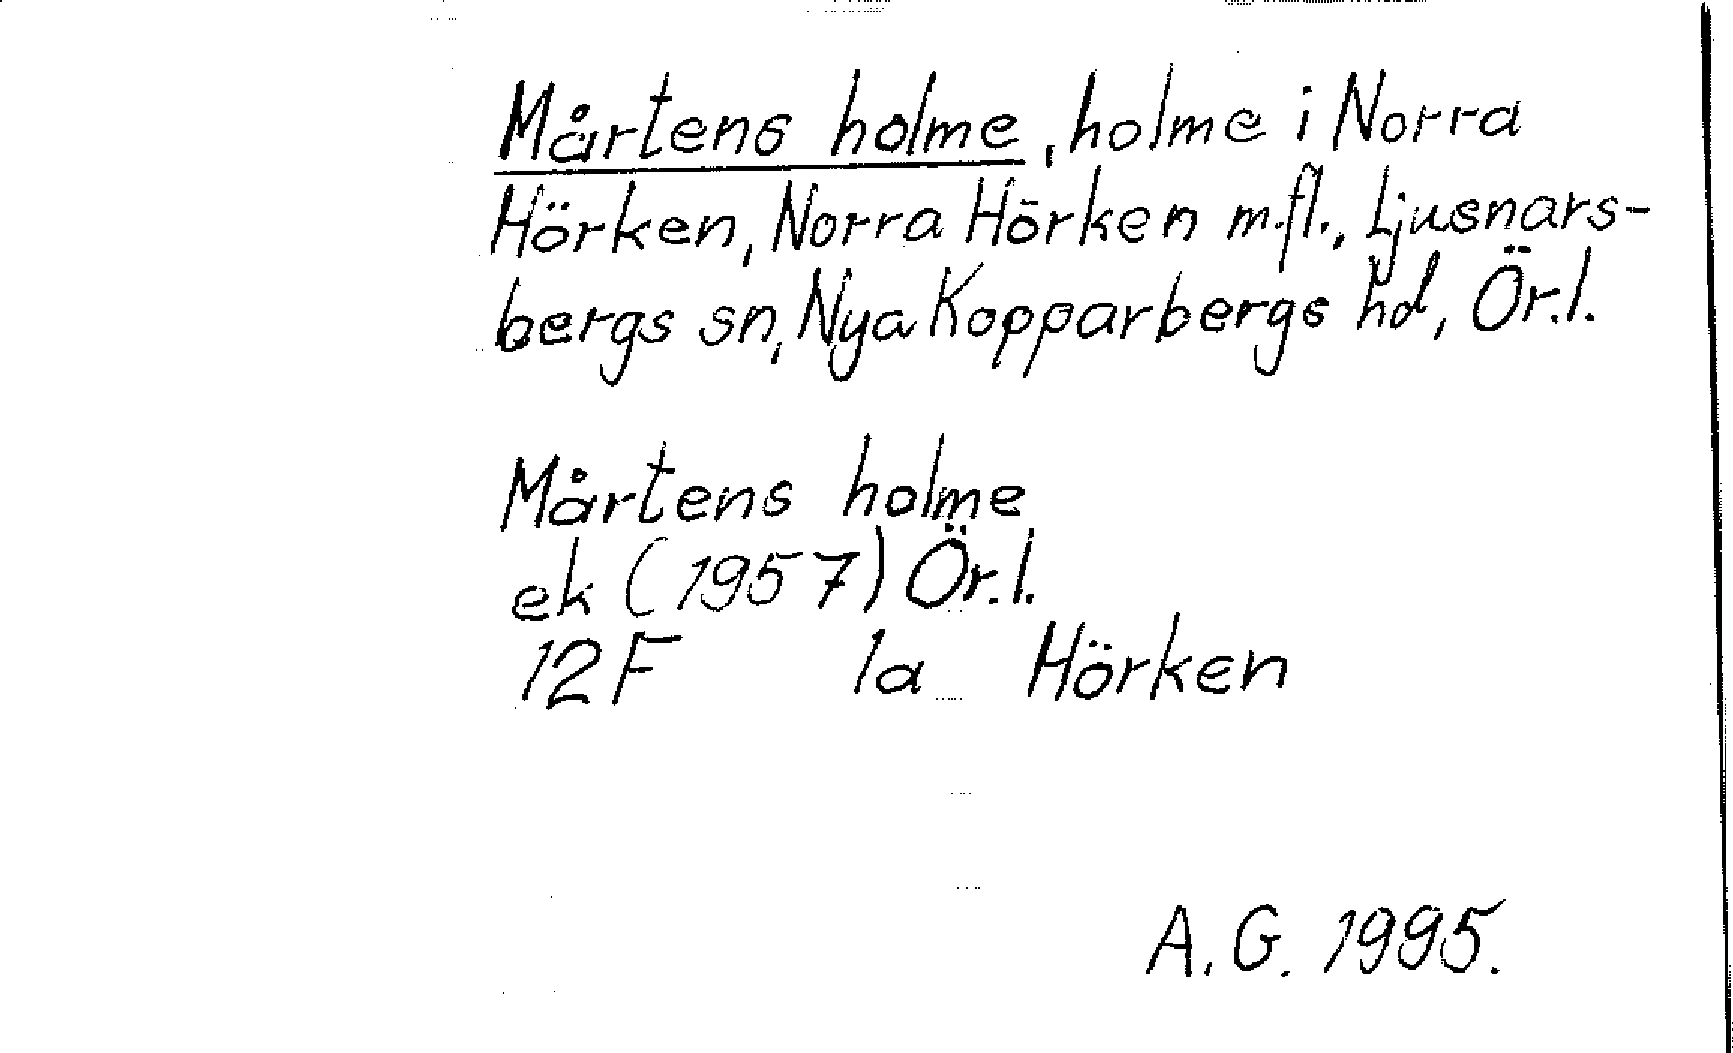 Mårtens holme, holme i Norra
Hörken, Norra Hörken m.fl., Ljusnars-
bergs sn, Nya Kopparbergs hd, Ör.l.
Mårtens holme
ek (1957) Ör.l.
12F 1a Hörken
A.G. 1995.